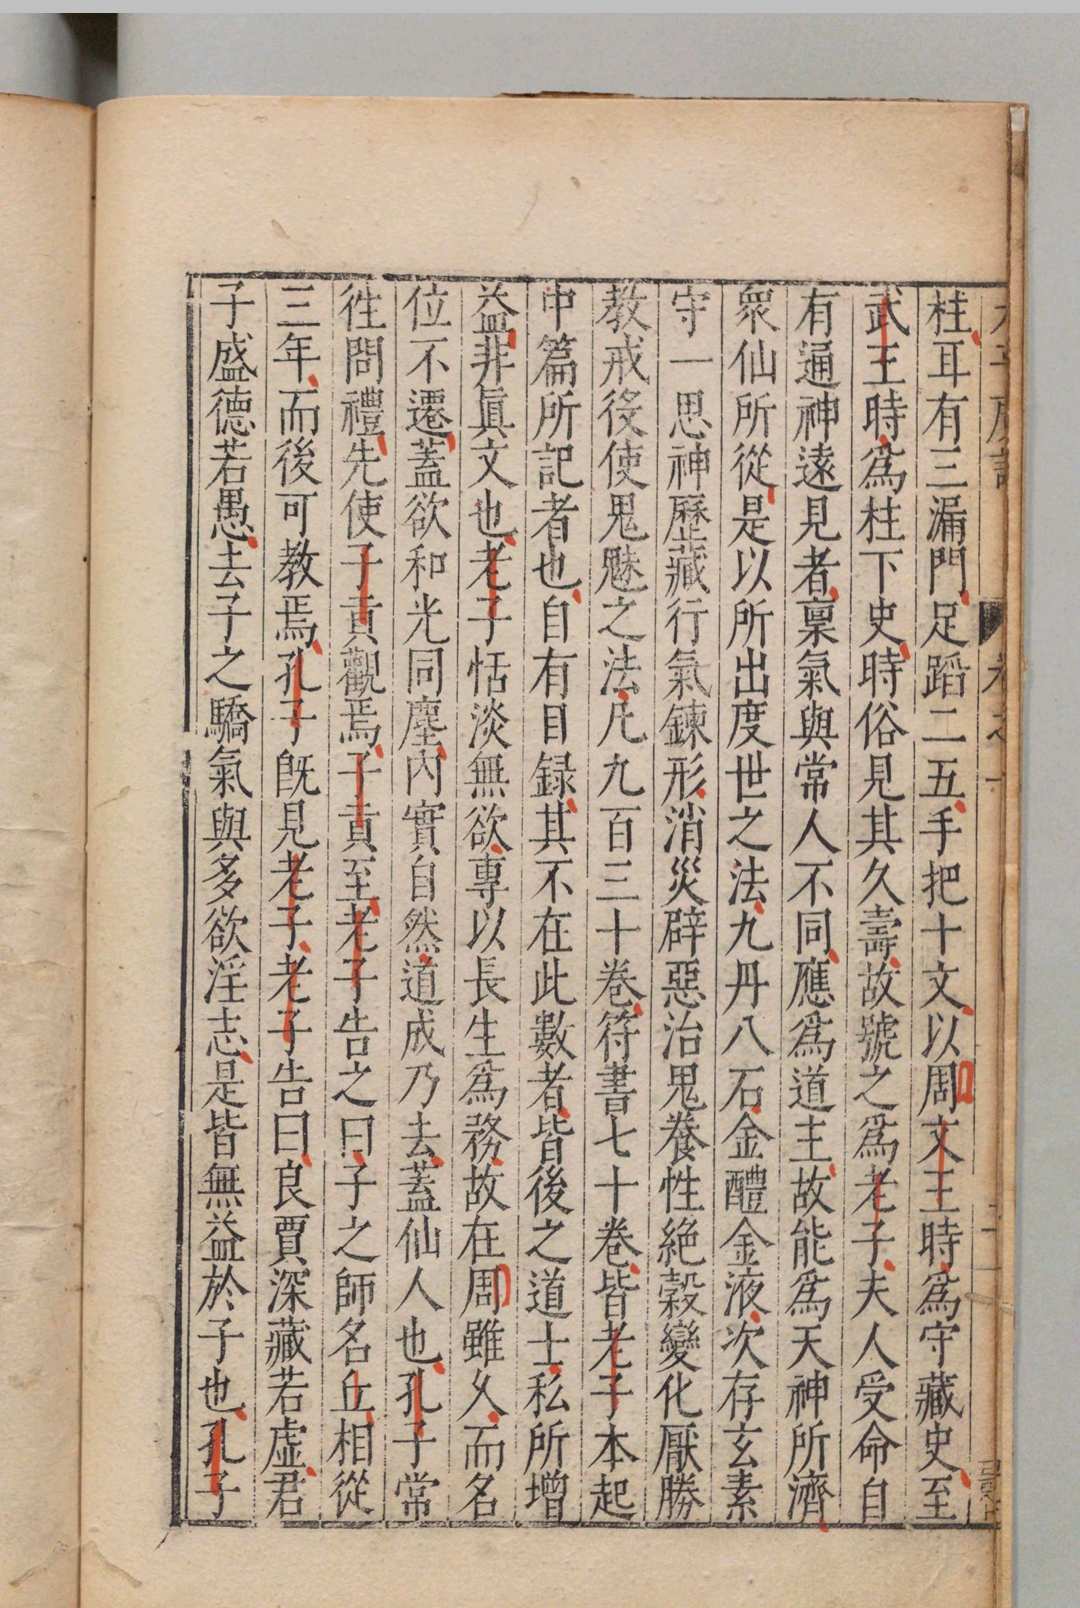 太平廣記 卷之一 二
柱耳有三漏門足蹈二五手把十文以周文王時爲守藏史至
武王時爲柱下史時俗見其久壽故號之爲老子夫人受命自
有通神遠見者稟氣與常人不同應爲道主故能爲天神所濟
衆仙所從是以所出度世之法九丹八石金醴金液次存玄素
守一思神歷藏行氣鍊形消災辟惡治鬼養性絶穀變化厭勝
教戒役使鬼魅之法凡九百三十卷符書七十卷皆老子本起
中篇所記者也自有目録其不在此數者皆後之道士私所增
益非眞文也老子恬淡無欲專以長生爲務故在周雖久而名
位不遷蓋欲和光同塵內實自然道成乃去蓋仙人也孔子常
徃問禮先使子貢觀焉子貢至老子告之曰子之師名丘相從
三年而後可教焉孔子既見老子老子告曰良賈深藏若虛君
子盛德若愚去子之驕氣與多欲淫志是皆無益於子也孔子